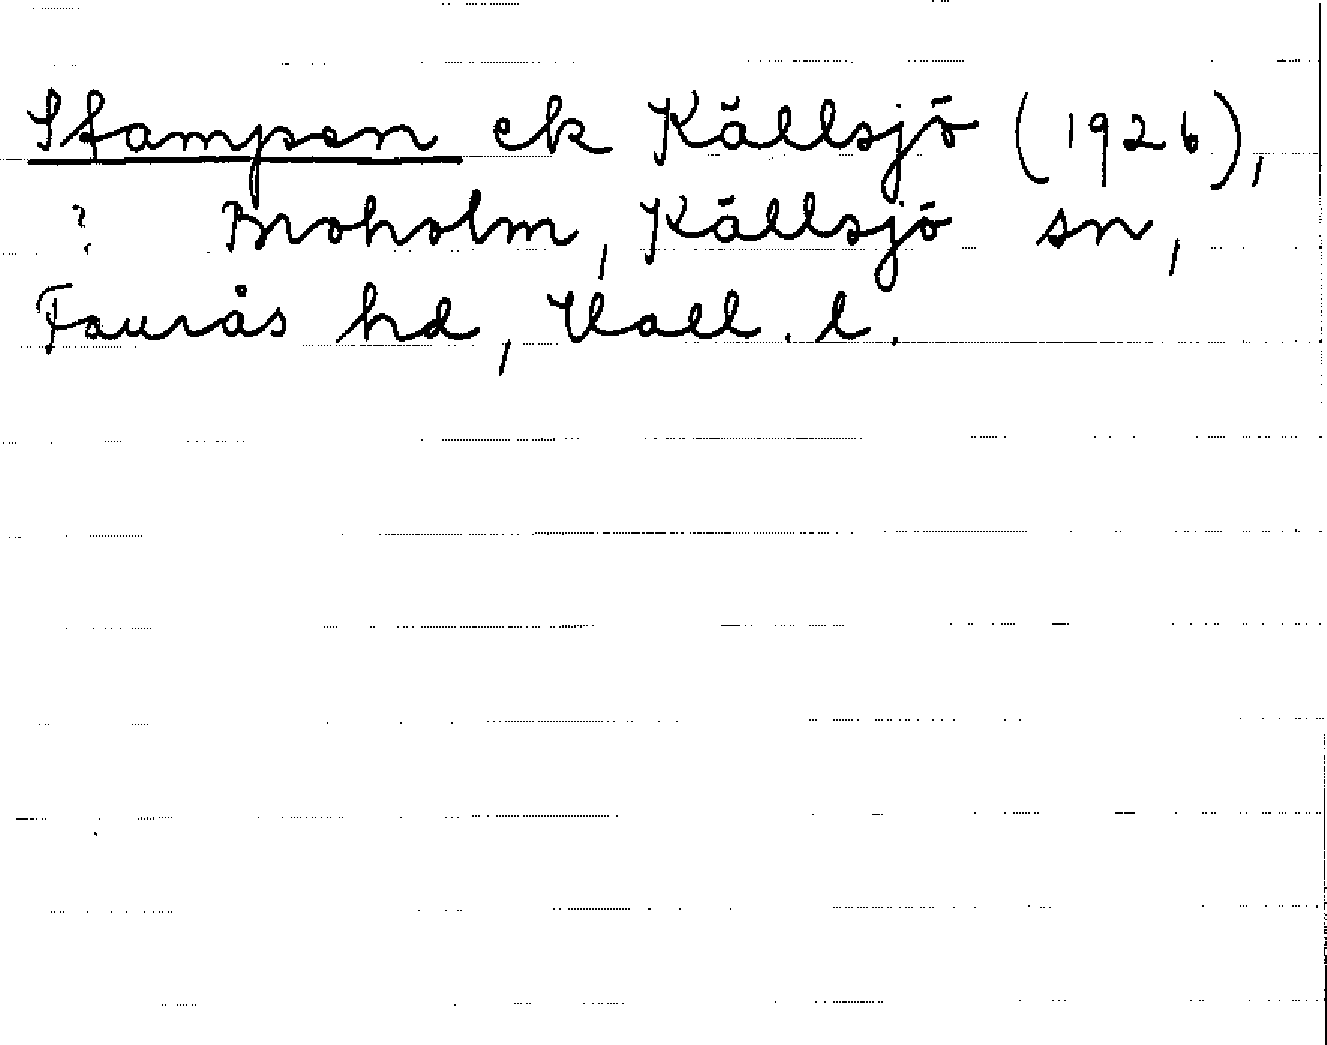 Stampen ek Källsjö (1926),
? Broholm, Källsjö sn,
Faurås hd, Hall. l.